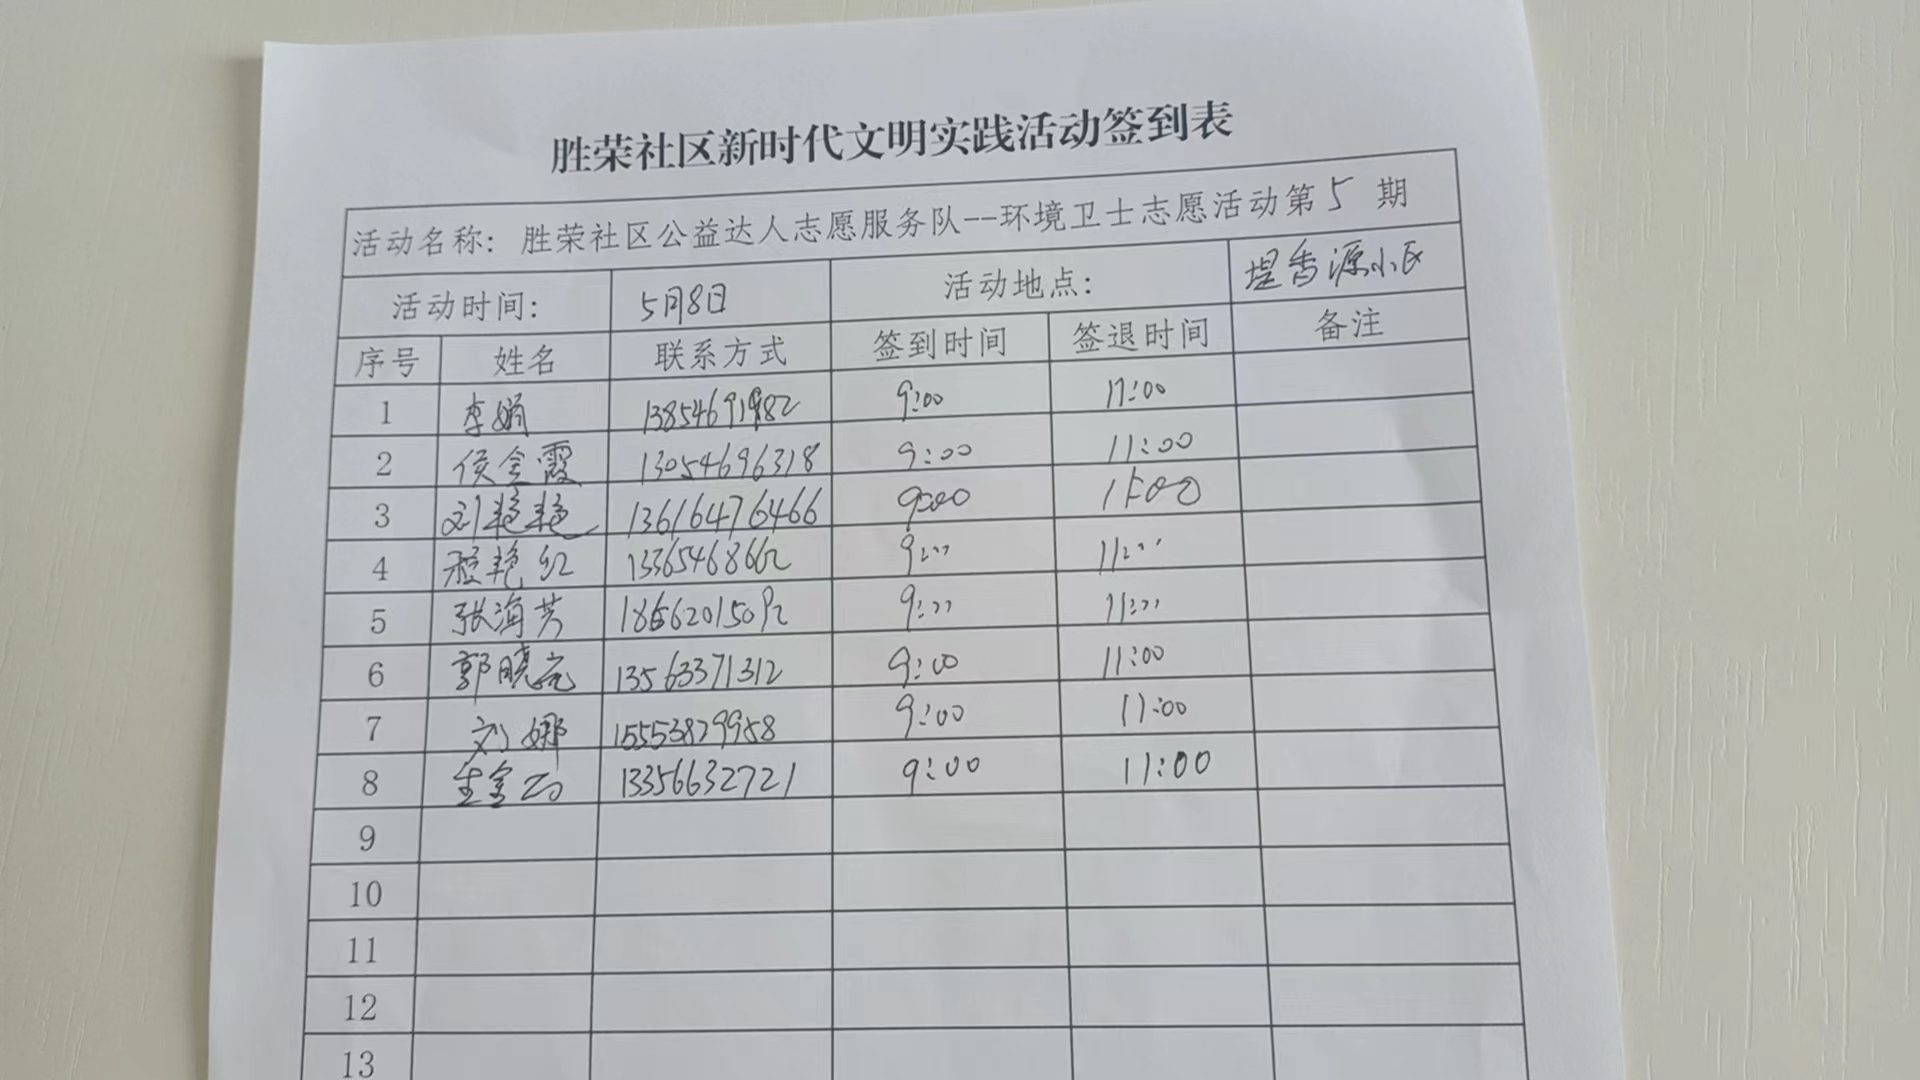 胜荣社区新时代文明实践活动签到表
活动名称: 胜荣社区公益达人志愿服务队--环境卫士志愿活动第 5 期
活动时间: 5月8日 活动地点: 香源小区
序号 姓名 联系方式 签到时间 签退时间 备注
1 李娟 13854691982 9:00 11:00
2 侯金霞 13054696318 9:00 11:00
3 刘艳艳 13616476466 9:00 11:00
4 程艳红 13365468662 9:00 11:00
5 张海芳 18662015092 9:00 11:00
6 郭晓亮 13563371312 9:00 11:00
7 刘娜 15553829958 9:00 11:00
8 13356632721 9:00 11:00
9
10
11
12
13